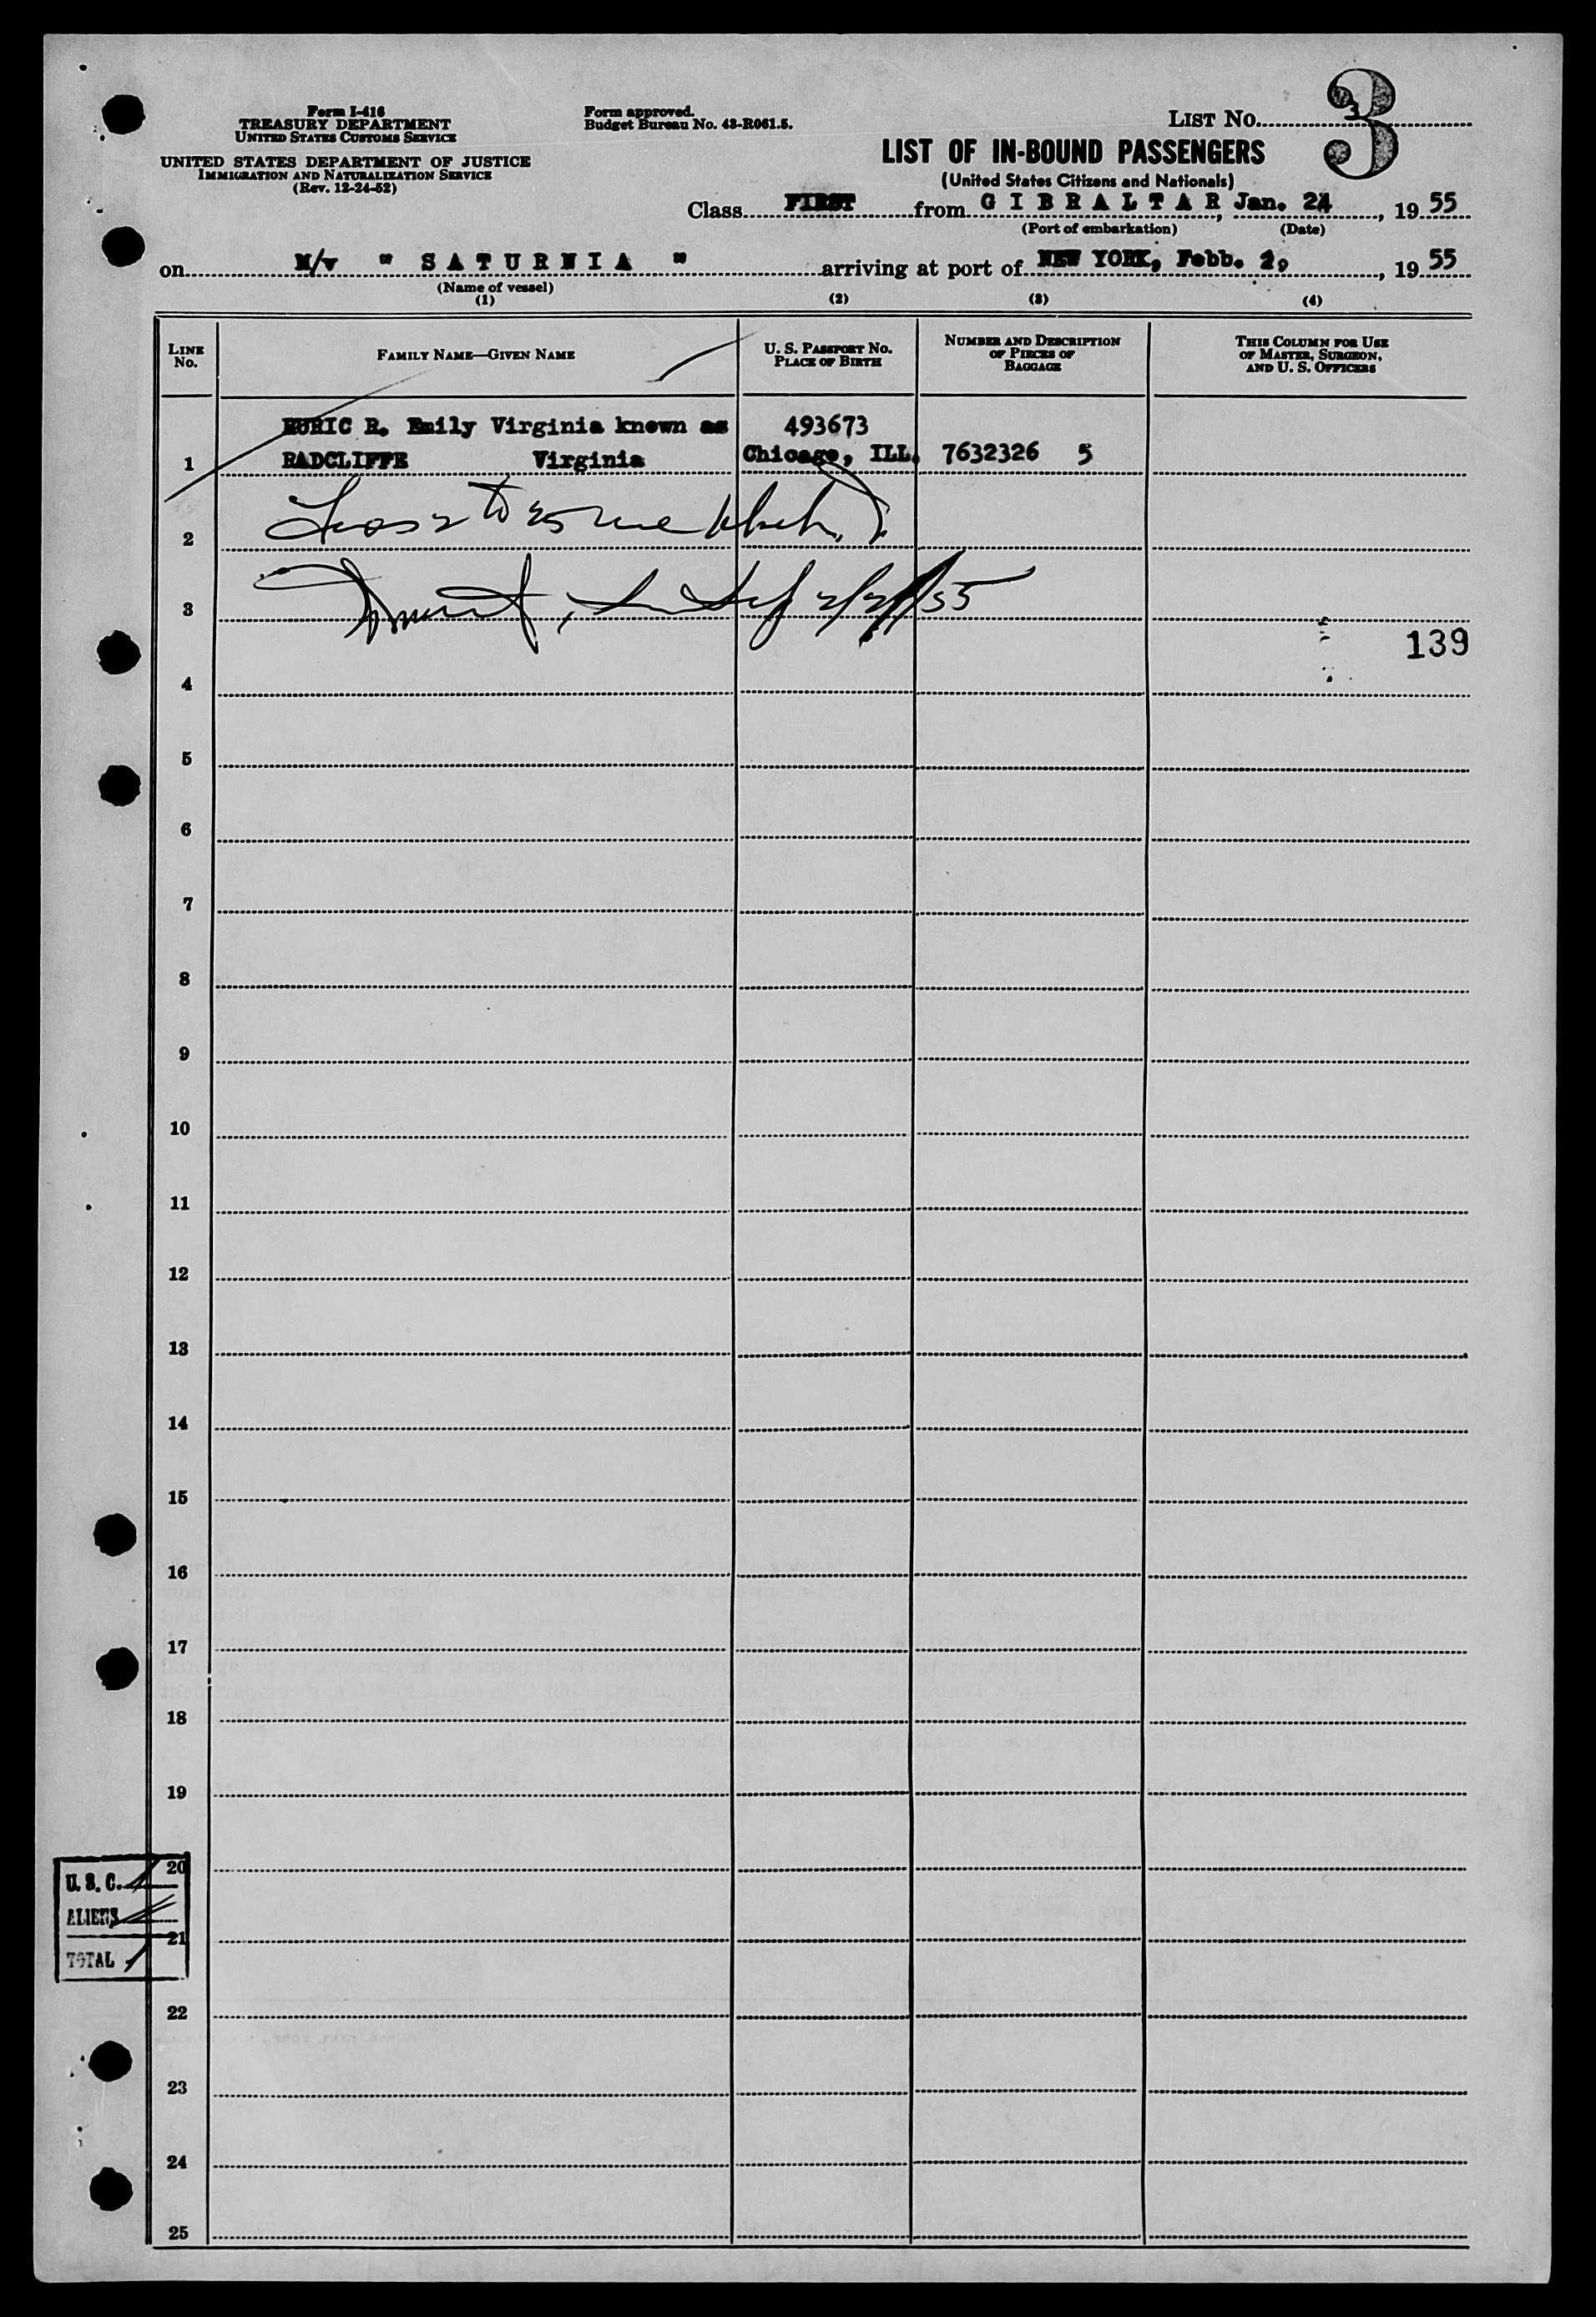 Form I-416
TREASURY DEPARTMENT
UNITED STATES CUSTOMS SERVICE
UNITED STATES DEPARTMENT OF JUSTICE
IMMIGRATION AND NATURALIZATION SERVICE
(Rev. 12-24-52)
Form approved.
Budget Bureau No. 43-R061.5.
LIST No. 3
LIST OF IN-BOUND PASSENGERS
(United States Citizens and Nationals)
Class FIRST from GIBRALTAR, Jan. 24, 1955
(Port of embarkation) (Date)
on M/v " SATURNIA " arriving at port of NEW YORK, Febb. 2, 1955
(Name of vessel)
(1) (2) (3) (4)
LINE No. FAMILY NAME—GIVEN NAME U. S. PASSPORT No. PLACE OF BIRTH NUMBER AND DESCRIPTION OF PIECES OF BAGGAGE THIS COLUMN FOR USE OF MASTER, SURGEON, AND U. S. OFFICERS
R. Emily Virginia known as 493673
1 RADCLIFFE Virginia Chicago, ILL. 7632326 5
2
3 2/2/55
139
4
5
6
7
8
9
10
11
12
13
14
15
16
17
18
19
20
U. S. C. 1
ALIENS
21
TOTAL 1
22
23
24
25